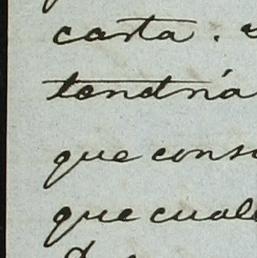 carta.
tendría
que cons
que cual